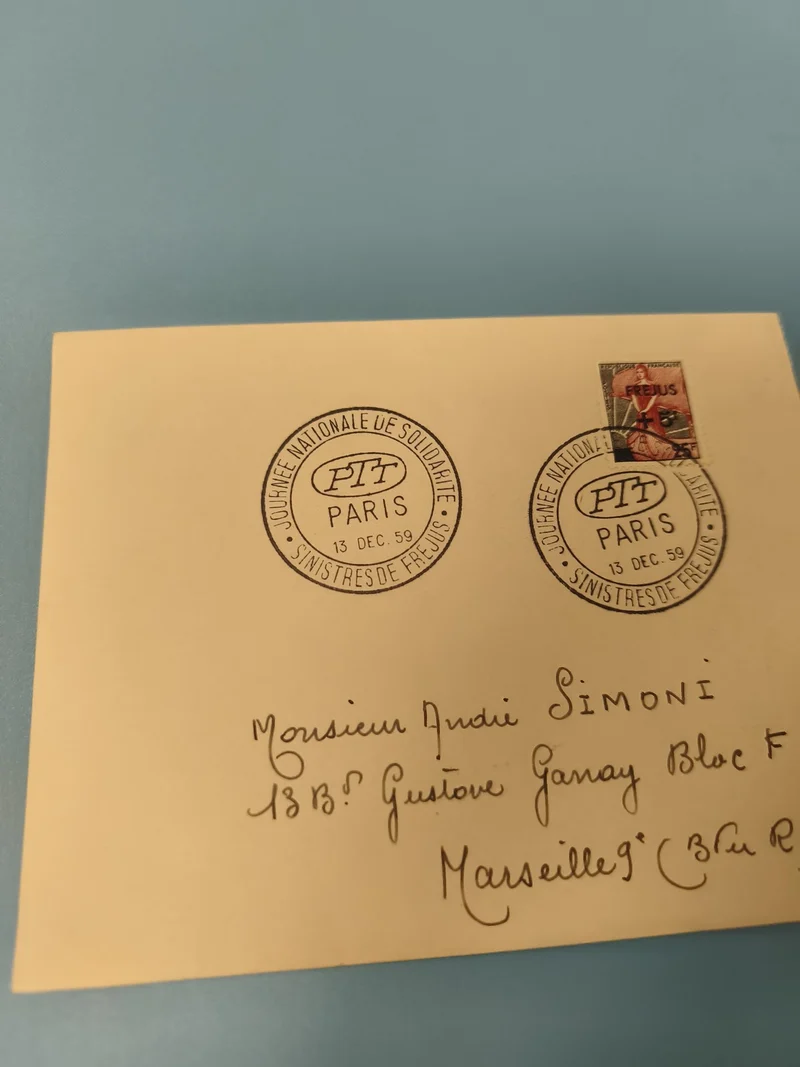 REPUBLIQUE FRANÇAISE
FREJUS
+ 5F
25F
JOURNEE NATIONALE DE SOLIDARITE
PTT
PARIS
13 DEC. 59
• SINISTRES DE FREJUS •
JOURNEE NATIONAL
DARITE
PTT
PARIS
13 DEC. 59
• SINISTRES DE FREJUS •
Monsieur André SIMONI
13 Bd Gustave Ganay Bloc F
Marseille 9e (B du R